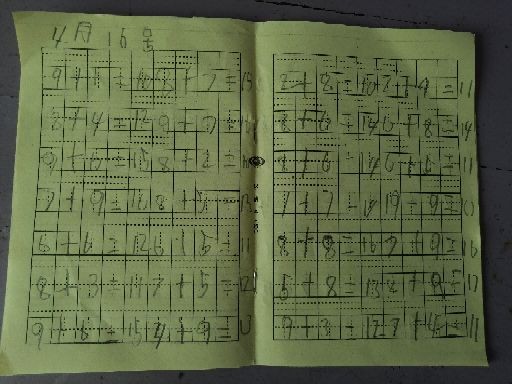 4月16号
9+1=10 8+7=15
8+4=12 9+7=16
9+6=15 8+2=10
7+9=16 8+5=13
6+6=12 6+5=11
8+3=11 7+5=12
9+6=15 4+9=13
2+8=10 2+9=11
8+6=14 6+8=14
8+6=14 6+5=11
7+7=14
8+8=16 7+9=16
5+8=13 8+9=17
9+3=12 7+4=11